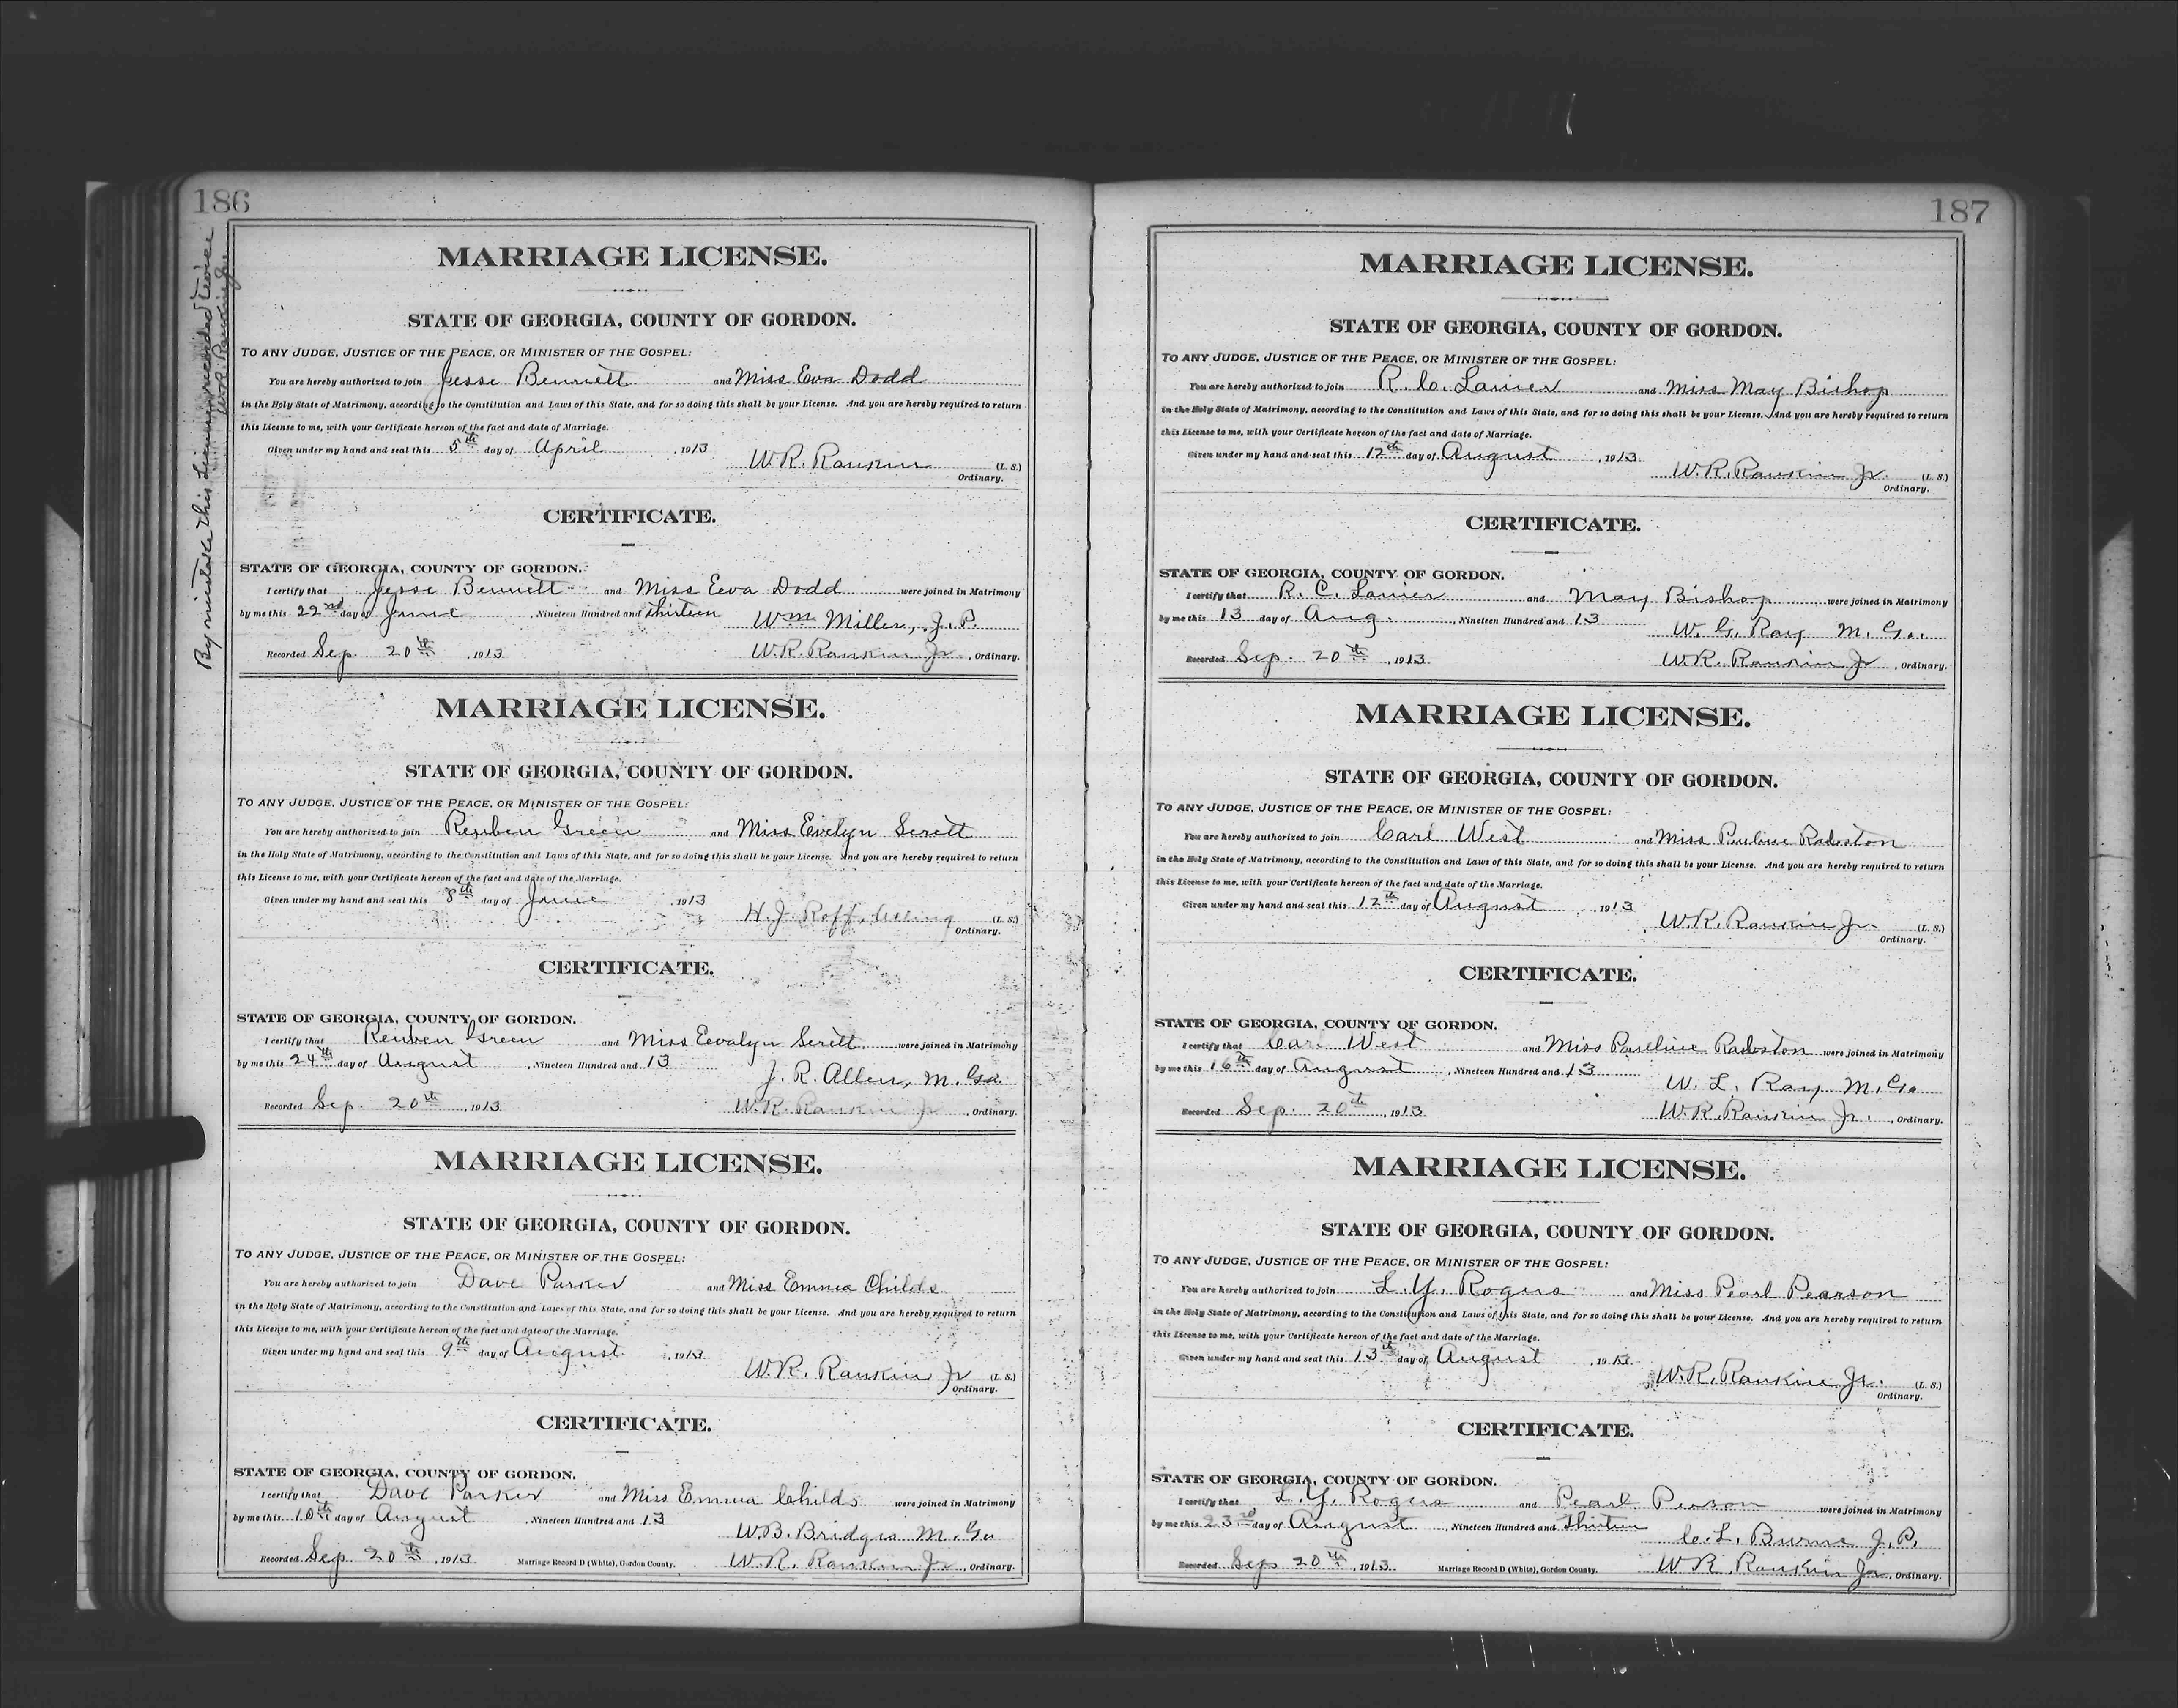 186
By mistake this License recorded twice
W.R. Rankin Jr.
MARRIAGE LICENSE.
STATE OF GEORGIA, COUNTY OF GORDON.
TO ANY JUDGE, JUSTICE OF THE PEACE, OR MINISTER OF THE GOSPEL:
You are hereby authorized to join Jesse Bennett and Miss Eva Dodd
in the Holy State of Matrimony, according to the Constitution and Laws of this State, and for so doing this shall be your License. And you are hereby required to return
this License to me, with your Certificate hereon of the fact and date of Marriage.
Given under my hand and seal this 5th day of April, 1913
W.R. Rankin (L. S.)
Ordinary.
CERTIFICATE.
STATE OF GEORGIA, COUNTY OF GORDON.
I certify that Jesse Bennett and Miss Eeva Dodd were joined in Matrimony
by me this 22nd day of June, Nineteen Hundred and thirteen
Wm Miller, J. P.
Recorded Sep. 20th, 1913 W.R. Rankin Jr, Ordinary.
MARRIAGE LICENSE.
STATE OF GEORGIA, COUNTY OF GORDON.
TO ANY JUDGE, JUSTICE OF THE PEACE, OR MINISTER OF THE GOSPEL:
You are hereby authorized to join Reuben Green and Miss Evelyn Serett
in the Holy State of Matrimony, according to the Constitution and Laws of this State, and for so doing this shall be your License. And you are hereby required to return
this License to me, with your Certificate hereon of the fact and date of the Marriage.
Given under my hand and seal this 8th day of June, 1913
H. J. Roff, Acting (L. S.)
Ordinary.
CERTIFICATE.
STATE OF GEORGIA, COUNTY OF GORDON.
I certify that Reuben Green and Miss Eevalyn Serett were joined in Matrimony
by me this 24th day of August, Nineteen Hundred and 13
J. R. Allen, M. Go.
Recorded Sep. 20th, 1913 W.R. Rankin Jr, Ordinary.
MARRIAGE LICENSE.
STATE OF GEORGIA, COUNTY OF GORDON.
TO ANY JUDGE, JUSTICE OF THE PEACE, OR MINISTER OF THE GOSPEL:
You are hereby authorized to join Dave Parker and Miss Emma Childs
in the Holy State of Matrimony, according to the Constitution and Laws of this State, and for so doing this shall be your License. And you are hereby required to return
this License to me, with your Certificate hereon of the fact and date of the Marriage.
Given under my hand and seal this 9th day of August, 1913
W.R. Rankin Jr (L. S.)
Ordinary.
CERTIFICATE.
STATE OF GEORGIA, COUNTY OF GORDON.
I certify that Dave Parker and Miss Emma Childs were joined in Matrimony
by me this 10th day of August, Nineteen Hundred and 13
W.B. Bridges M. Go
Recorded Sep 20th, 1913. Marriage Record D (White), Gordon County. W.R. Rankin Jr, Ordinary.
187
MARRIAGE LICENSE.
STATE OF GEORGIA, COUNTY OF GORDON.
TO ANY JUDGE, JUSTICE OF THE PEACE, OR MINISTER OF THE GOSPEL:
You are hereby authorized to join R. C. Lanier and Miss May Bishop
in the Holy State of Matrimony, according to the Constitution and Laws of this State, and for so doing this shall be your License. And you are hereby required to return
this License to me, with your Certificate hereon of the fact and date of Marriage.
Given under my hand and seal this 12th day of August, 1913
W.R. Rankin Jr. (L. S.)
Ordinary.
CERTIFICATE.
STATE OF GEORGIA, COUNTY OF GORDON.
I certify that R. C. Lanier and May Bishop were joined in Matrimony
by me this 13 day of Aug., Nineteen Hundred and 13
W. G. Ray M. Go.
Recorded Sep. 20th, 1913. W.R. Rankin Jr, Ordinary.
MARRIAGE LICENSE.
STATE OF GEORGIA, COUNTY OF GORDON.
TO ANY JUDGE, JUSTICE OF THE PEACE, OR MINISTER OF THE GOSPEL:
You are hereby authorized to join Carl West and Miss Pauline Ralston
in the Holy State of Matrimony, according to the Constitution and Laws of this State, and for so doing this shall be your License. And you are hereby required to return
this License to me, with your Certificate hereon of the fact and date of the Marriage.
Given under my hand and seal this 12th day of August, 1913
W.R. Rankin Jr (L. S.)
Ordinary.
CERTIFICATE.
STATE OF GEORGIA, COUNTY OF GORDON.
I certify that Carl West and Miss Pauline Ralston were joined in Matrimony
by me this 16th day of August, Nineteen Hundred and 13
W. L. Ray M. Go
Recorded Sep. 20th, 1913 W.R. Rankin Jr., Ordinary.
MARRIAGE LICENSE.
STATE OF GEORGIA, COUNTY OF GORDON.
TO ANY JUDGE, JUSTICE OF THE PEACE, OR MINISTER OF THE GOSPEL:
You are hereby authorized to join L. Y. Rogers and Miss Pearl Pearson
in the Holy State of Matrimony, according to the Constitution and Laws of this State, and for so doing this shall be your License. And you are hereby required to return
this License to me, with your Certificate hereon of the fact and date of the Marriage.
Given under my hand and seal this 13th day of August, 1913.
W.R. Rankin Jr. (L. S.)
Ordinary.
CERTIFICATE.
STATE OF GEORGIA, COUNTY OF GORDON.
I certify that L. Y. Rogers and Pearl Person were joined in Matrimony
by me this 23rd day of August, Nineteen Hundred and thirteen
C. L. Burns J. P.
Recorded Sep 20th, 1913. Marriage Record D (White), Gordon County. W R. Rankin Jr, Ordinary.